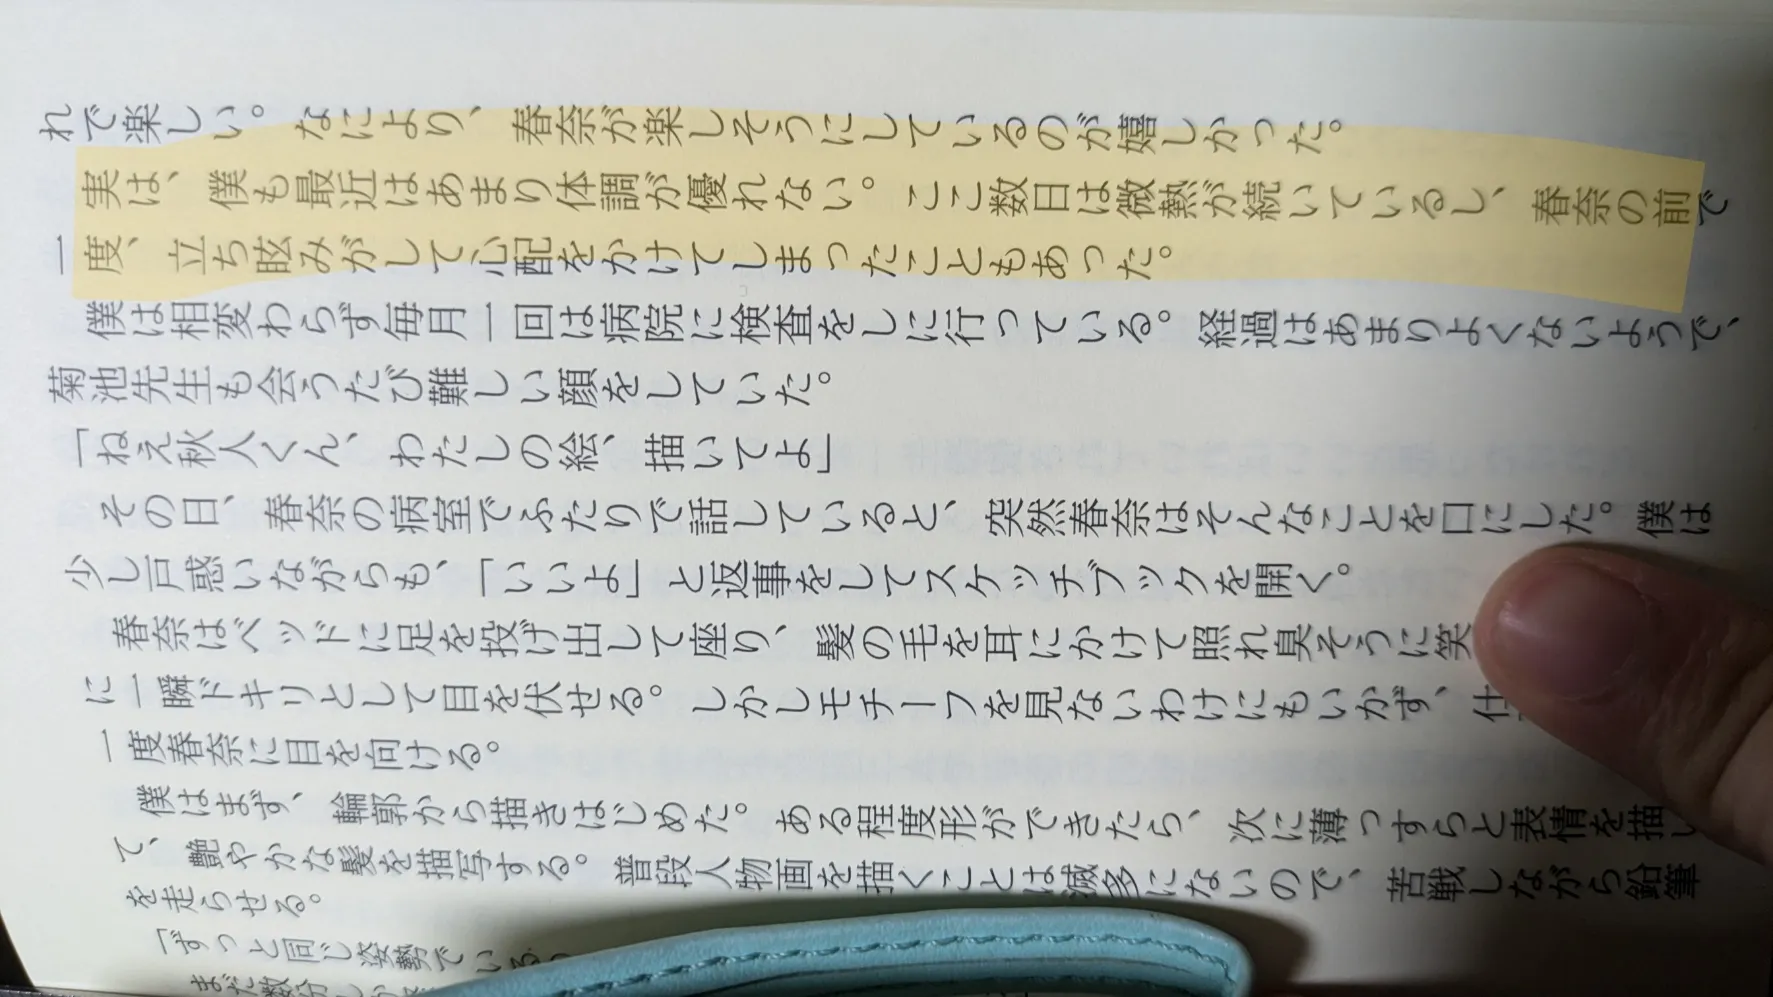 れで楽しい。なにより、春奈が楽しそうにしているのが嬉しかった。
実は、僕も最近はあまり体調が優れない。ここ数日は微熱が続いているし、春奈の前で
一度、立ち眩みがして心配をかけてしまったこともあった。
僕は相変わらず毎月一回は病院に検査をしに行っている。経過はあまりよくないようで、
菊池先生も会うたび難しい顔をしていた。
「ねえ秋人くん、わたしの絵、描いてよ」
その日、春奈の病室でふたりで話していると、突然春奈はそんなことを口にした。僕は
少し戸惑いながらも、「いいよ」と返事をしてスケッチブックを開く。
春奈はベッドに足を投げ出して座り、髪の毛を耳にかけて照れ臭そうに笑
に一瞬ドキリとして目を伏せる。しかしモチーフを見ないわけにもいかず、仕
一度春奈に目を向ける。
僕はまず、輪郭から描きはじめた。ある程度形ができたら、次に薄っすらと表情を描い
て、艶やかな髪を描写する。普段人物画を描くことは滅多にないので、苦戦しながら鉛筆
を走らせる。
「ずっと同じ姿勢でいる
まだ数分しか